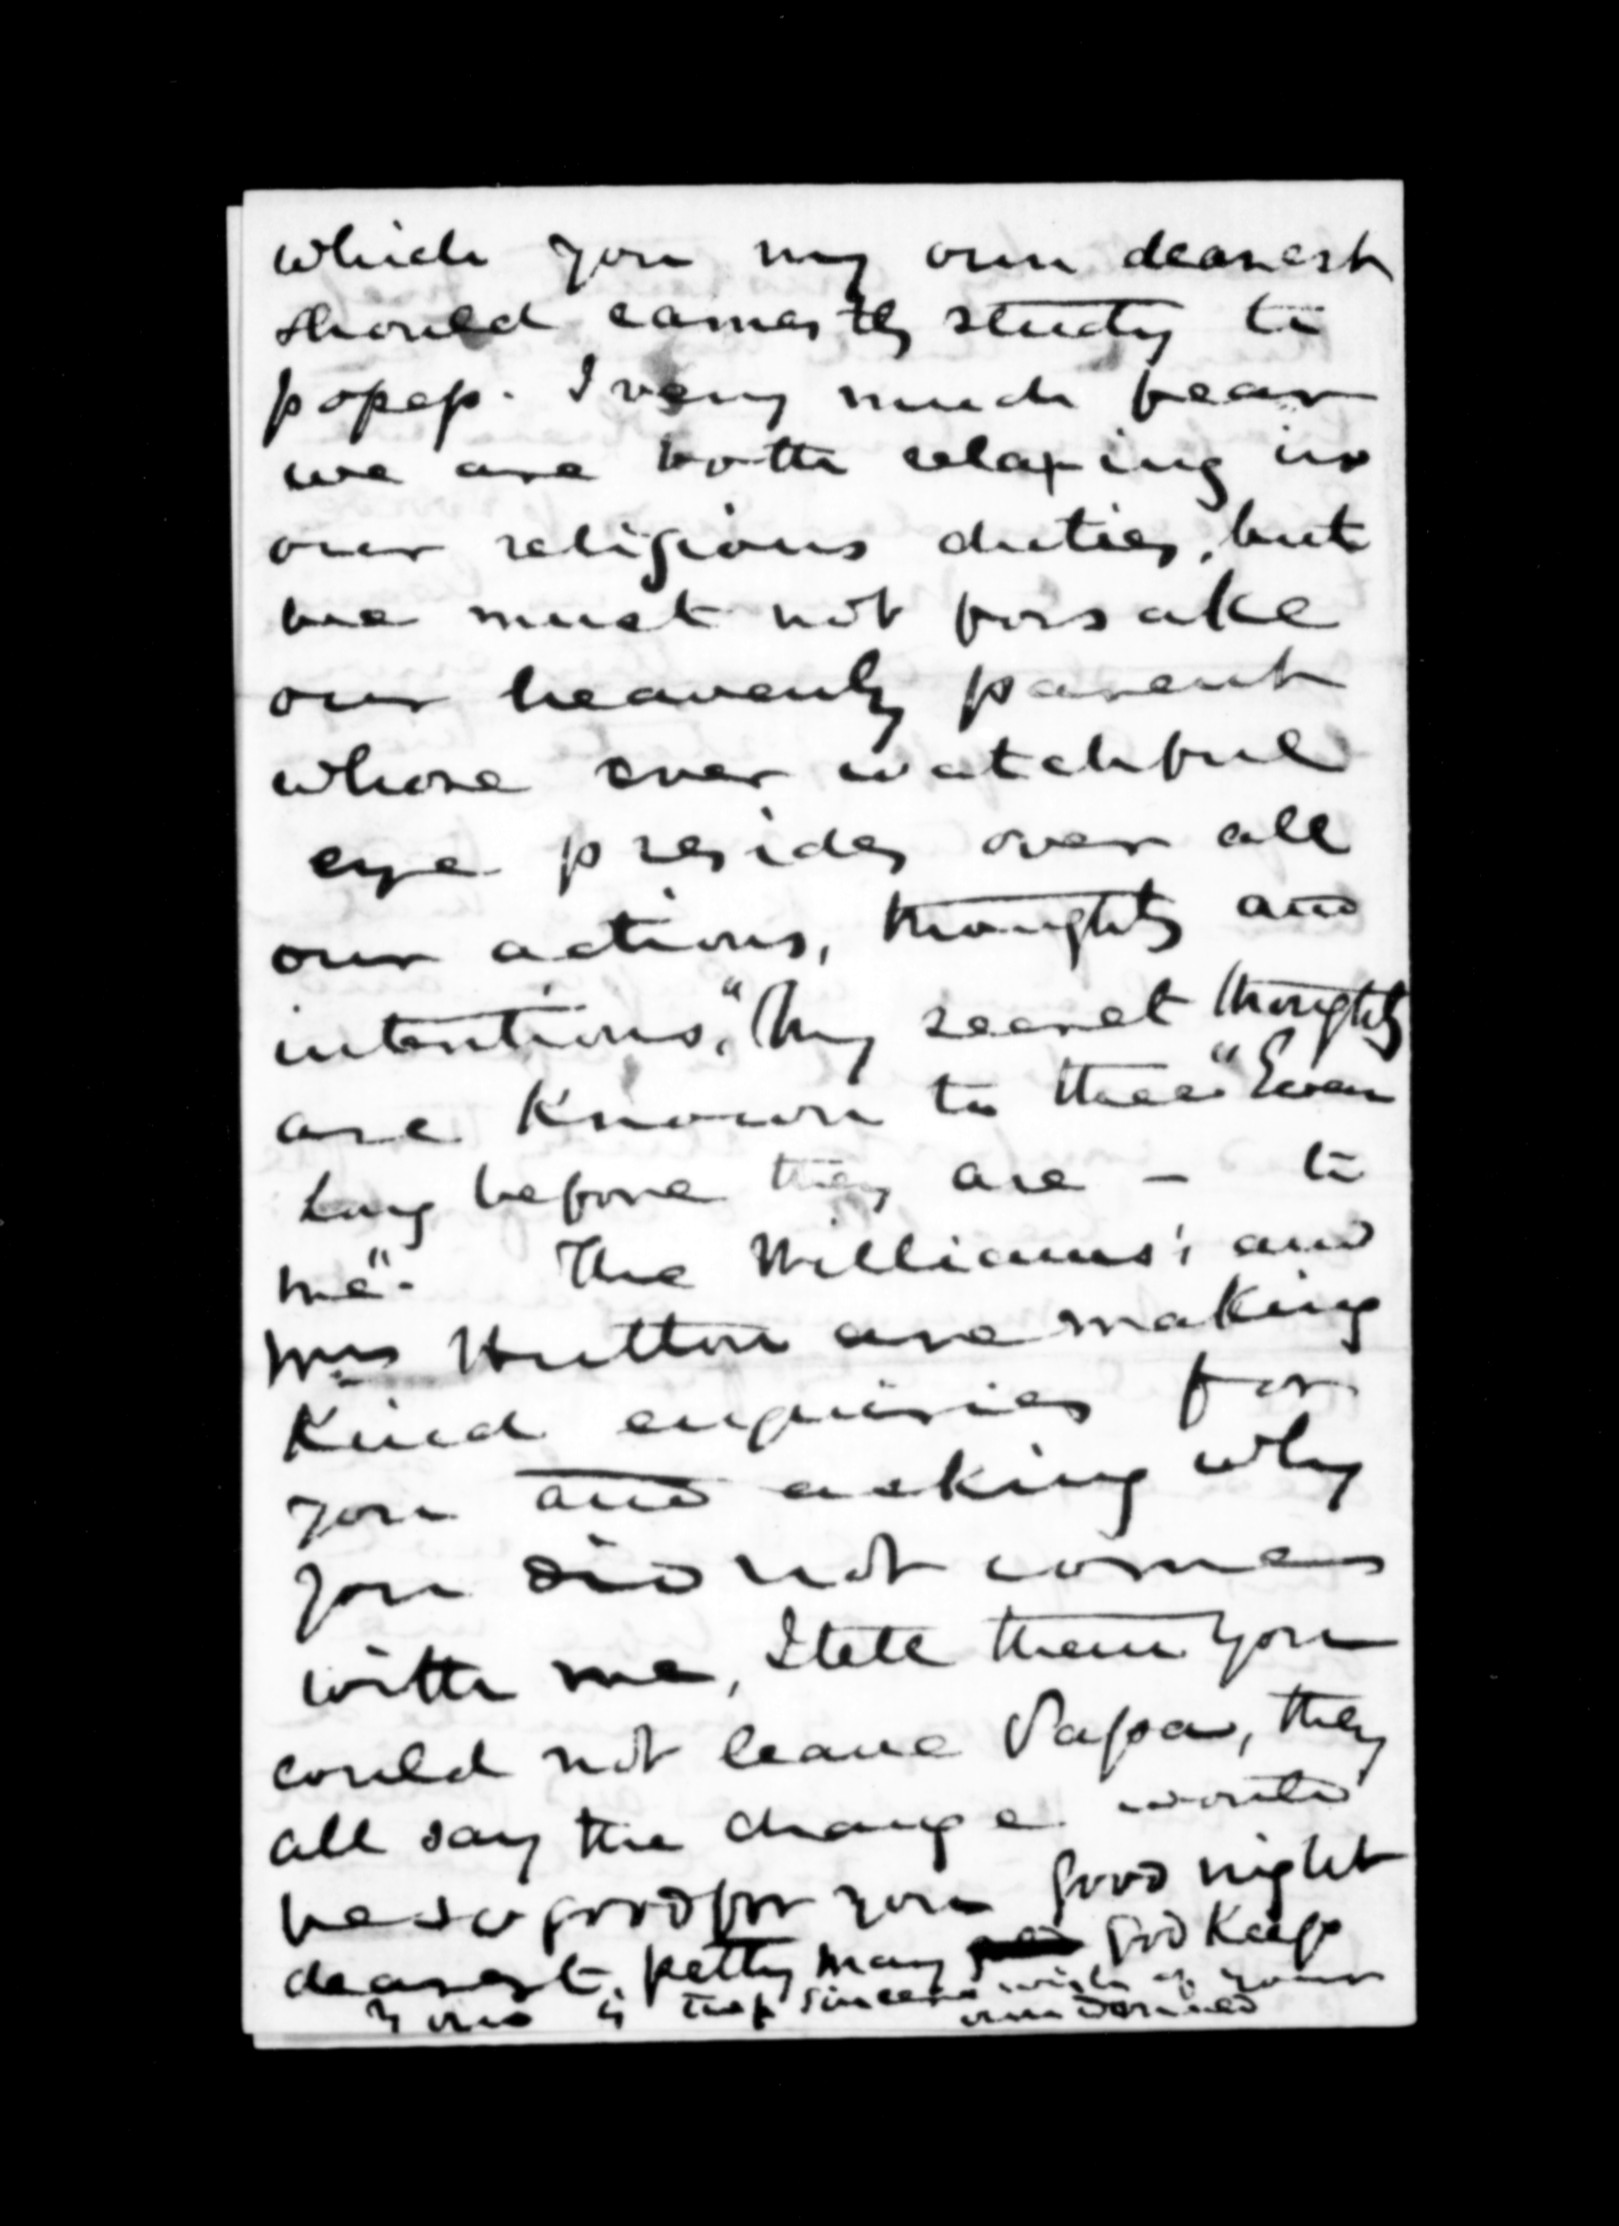 which you my own dearest
should earnestly study to
possess. I very much fear
we are both relaxing in
our religious duties, but
we must not forsake
our heavenly parent
whose ever watchful
eye presides over all
our actions, thoughts and
intentions, "My secret thoughts
are known to thee" "Even
long before they are - to
me". The Williams', and
Mrs Hutton are making
Kind enquiries for
you and asking why
you did not come
with me, I tell them you
could not leave Papa, they
all say the change would
be so good for you good night
dearest petty may God Keep
you is the sincere wish of your
own